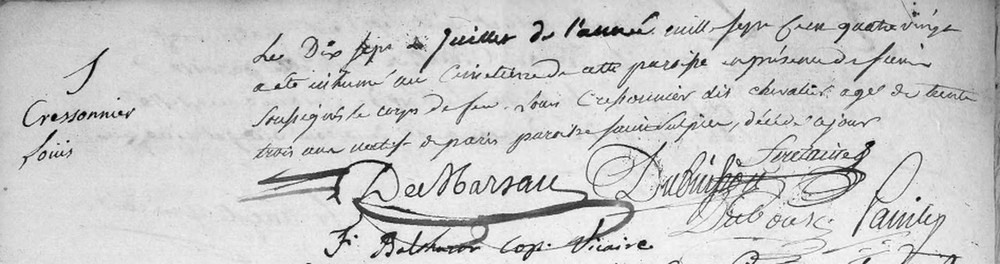 S
Cressonnier
Louis
Le Dix sept de Juillet de l'année mille sept Cent quatre vingt
a eté inhumé au Cimetiere de cette paroisse en présence de
soussignés le corps de feu Louis Cressonnier dit chevalier agé de trente
trois ans natif de paris paroisse saint Sulpice, décédé a jour
DeMarsau Dubuisson
Dubousc
F. Balthazar Cap. Vicaire